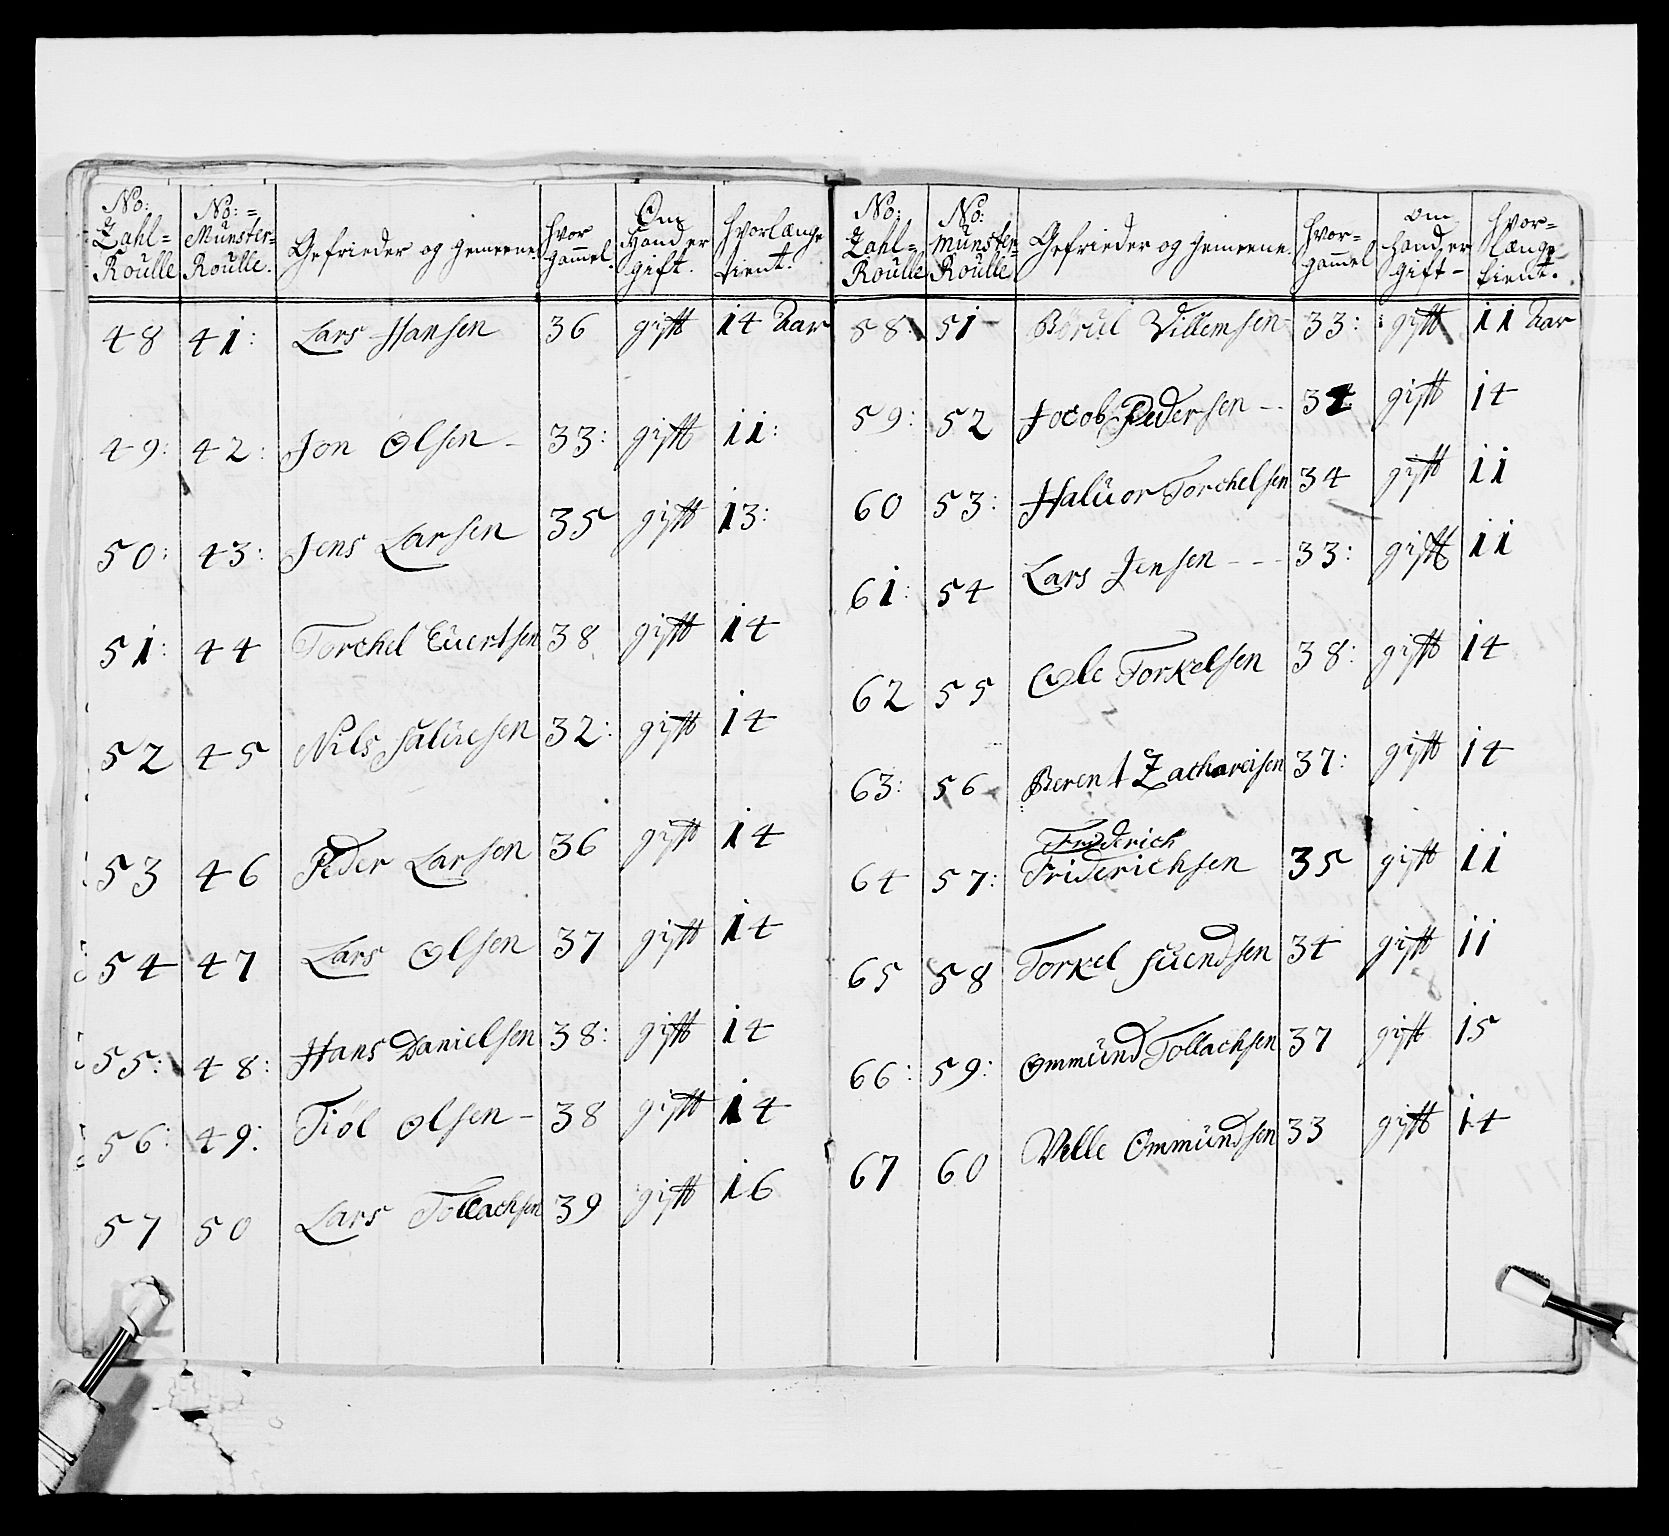 No: Zahl= Roulle | No:= Münster= Roulle. | Gefrieder og gemeene | hvor gammel. | Om Hand er gift. | hvorlænge tient.
48 41: Lars Hansen 36 gift 14 Aar
49: 42: Jon Olsen - 33: gift 11:
50: 43: Jens Larsen 35 gift 13:
51: 44 Torchel Euertsen 38 gift 14
52 45 Nils Salüesen 32: gift 14
53 46 Peder Larsen 36 gift 14
54 47 Lars Olsen 37 gift 14
55: 48: Hans Danielsen 38: gift 14
56: 49: Tiöl Olsen - 38 gift 14
57 50 Lars Tollachsen 39 gift 16
No: Zahl= Roulle | No: Münster= Roulle | Gefrieder og gemeene. | hvor= gammel | om hand er gift - | hvor= længe tient.
58: 51 Börül Villemsen 33: gift 11 Aar
59: 52 Jocob Pedersen -- 34 gift 14
60 53: Halüor Torchelsen 34 gift 11
61: 54 Lars Jensen --- 33: gift 11
62 55 Ole Torkelsen 38: gift 14
63: 56 Berent Zachareisen 37: gift 14
Friderich
64 57: Friderichsen 35 gift 11
65 58 Torkel Süendsen 34 gift 11
66: 59: Ommünd Tollachsen 37 gift 15
67 60 Velle Ommündsen 33 gift 14